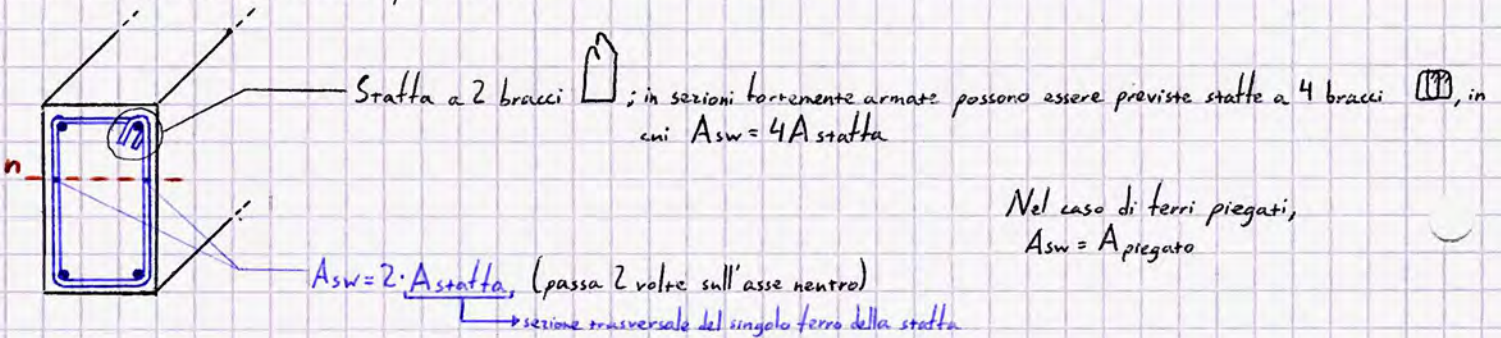 Staffa a 2 bracci ; in sezioni fortemente armate possono essere previste staffe a 4 bracci , in
cui Asw = 4A staffa
n
Nel caso di ferri piegati,
Asw = A piegato
Asw = 2·A staffa, (passa 2 volte sull'asse neutro)
sezione trasversale del singolo ferro della staffa